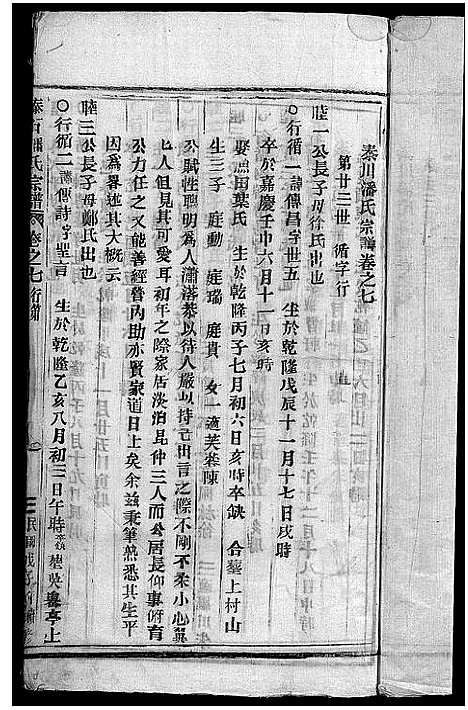 秦川潘氏宗譜卷之七
第廿三世 循字行
睦一公長子母徐氏出也
○行循一諱傳昌字世五 生於乾隆戊辰十一月十七日戌時
卒於嘉慶壬申六月十一日亥時
娶漁田葉氏 生於乾隆丙子七月初六日亥時卒缺 合葬上村山
生三子 庭動 庭瑞 庭貴 女一適芙蓉陳
公賦性聰明為人瀟落恭以待人嚴以持己出言之際不剛不柔小心翼
人俱可愛耳初年之際家居淡泊昆仲三人而公居長仰事俯育
公力任之又能善經營內助亦賢家道日上矣余兹秉筆熟悉其生平
因為畧述其大概云
睦三公長子母鄭氏出也
○行循二諱傳詩字聖言 生於乾隆乙亥八月初三日午時 墓吳亭上
氏宗譜 卷之七 行 民國戊子